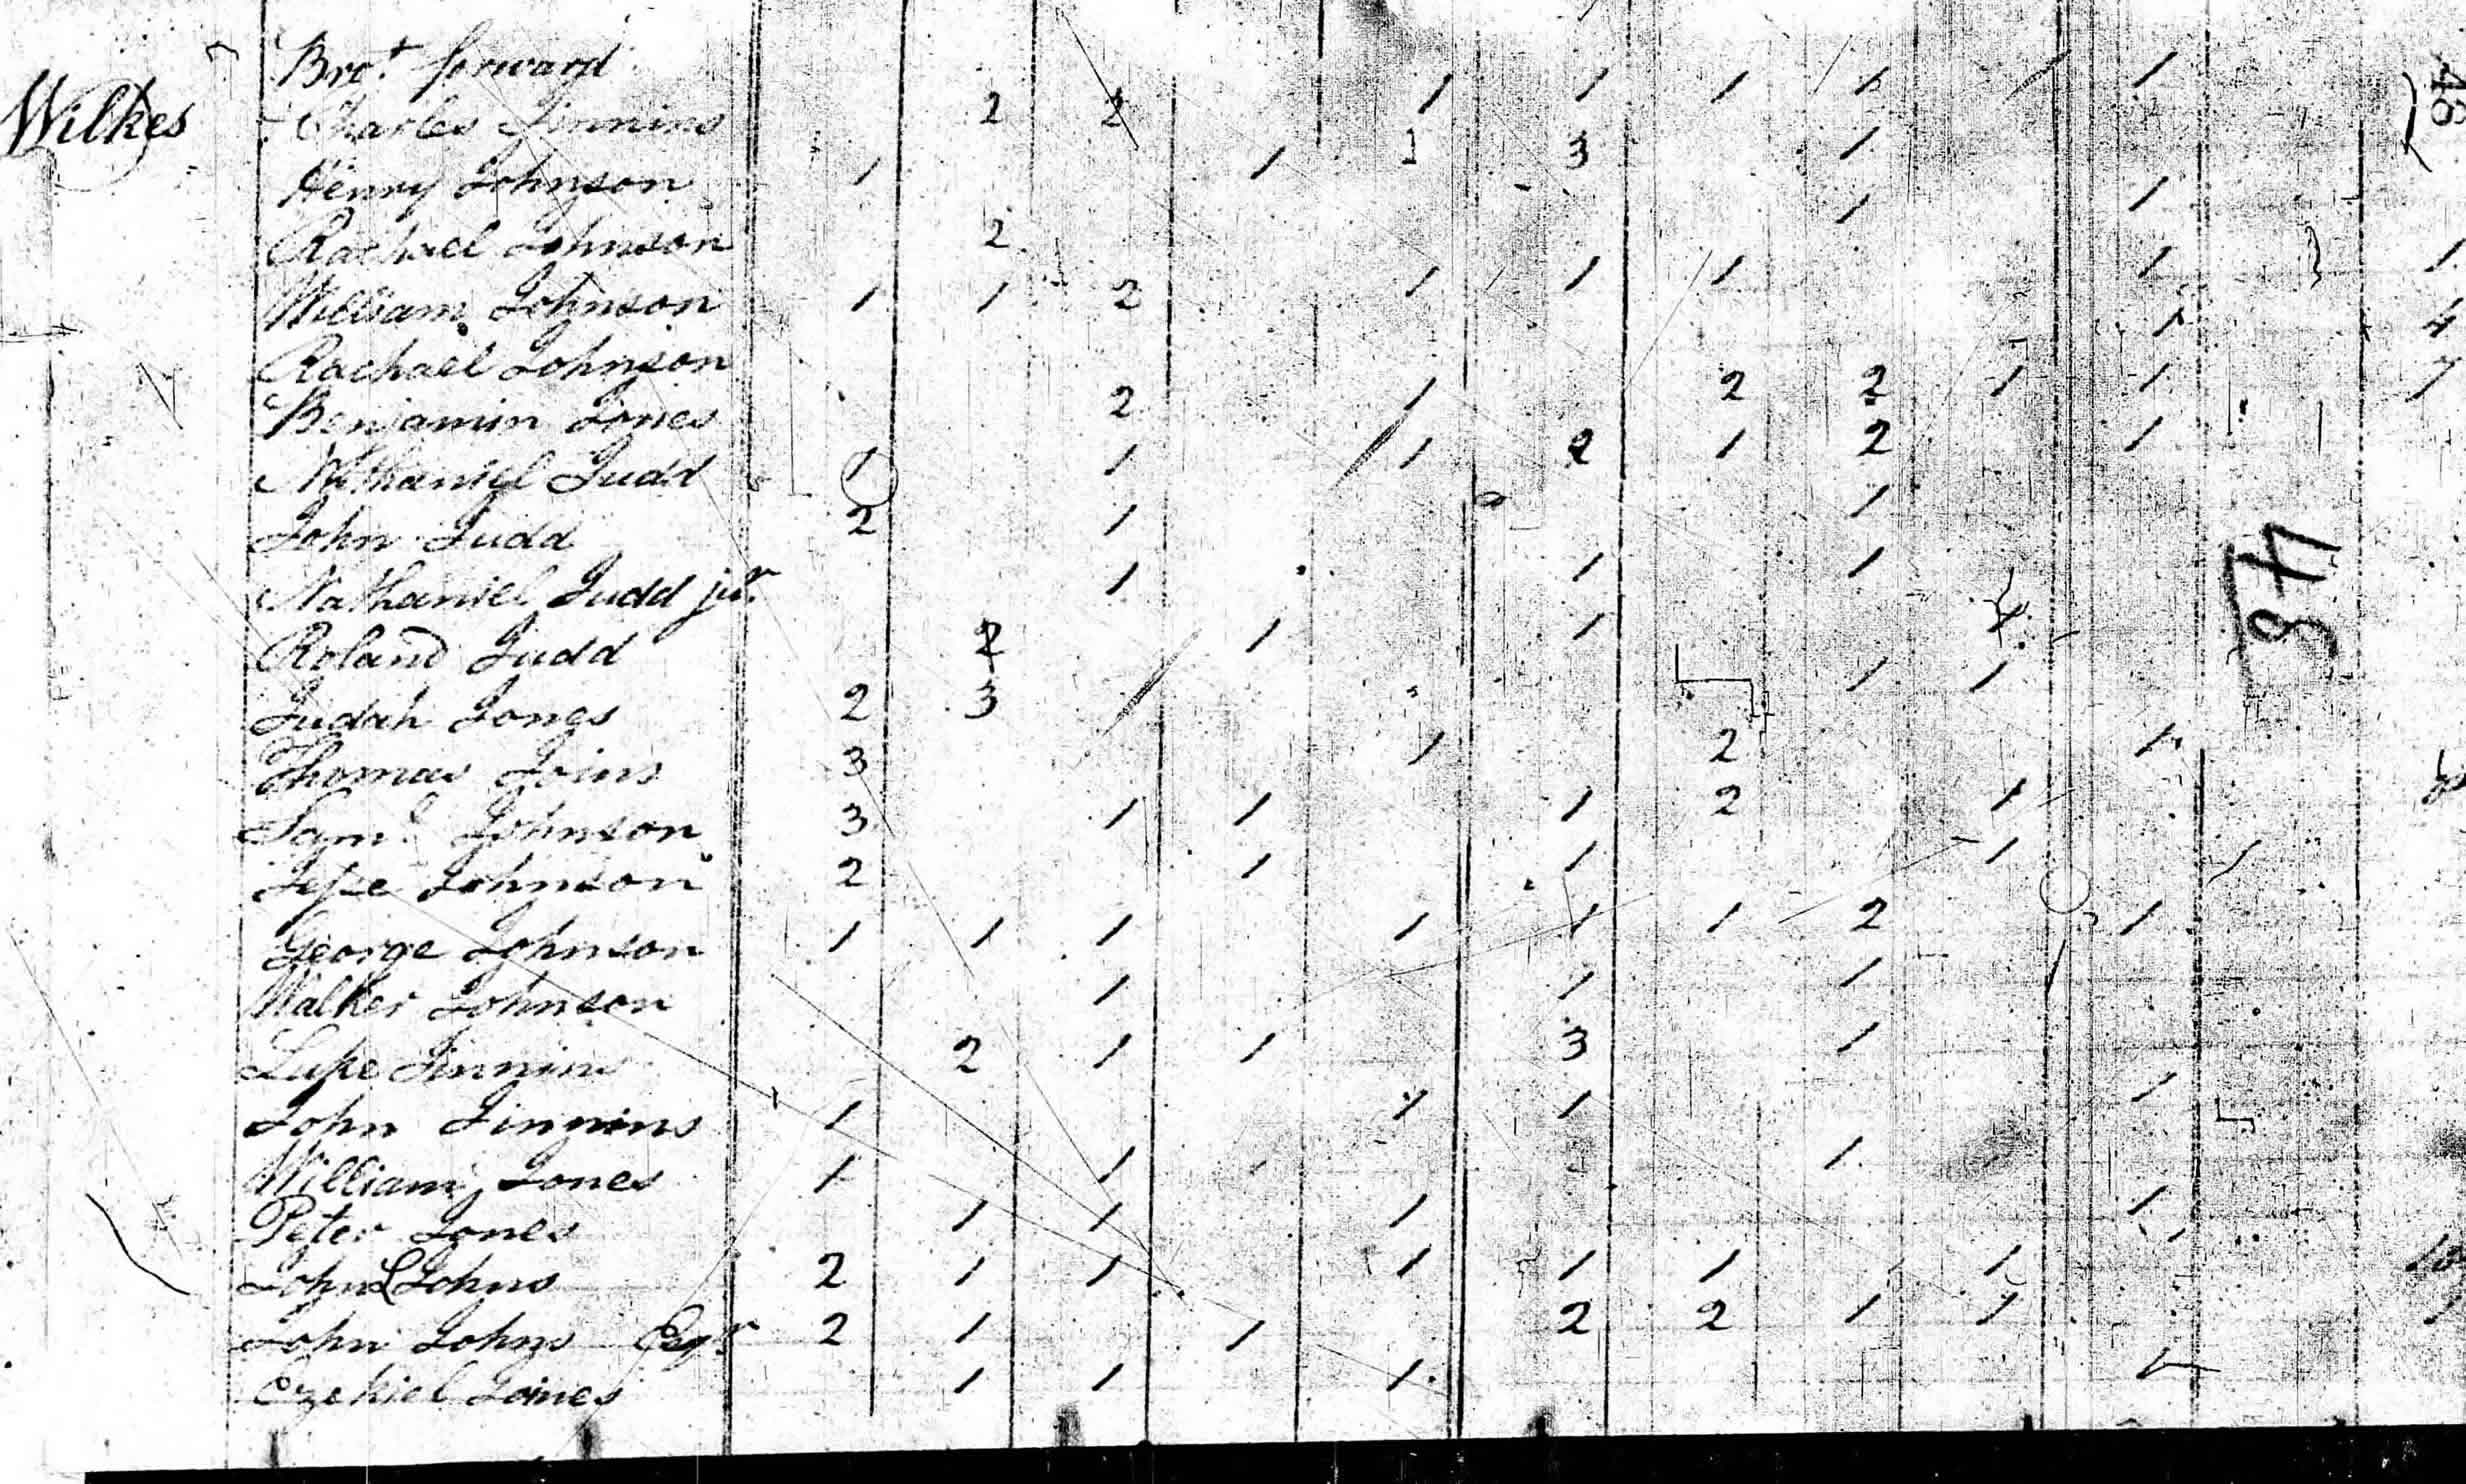 Wilkes
Brot forward
Charles Jinnins 2 2 1 1 1 1 1
48
Henry Johnson 1 1 1 3 1
Rachael Johnson 2 1 1
William Johnson 1 1 2 1 1 1 1 1
Rachael Johnson 1 4
Benjamin Jones 2 1 2 2 1 1 7
Nathaniel Judd 1 1 1 2 1 2 1
John Judd 2 1 1
Nathaniel Judd jur 1 1 1
48
Roland Judd 2 1 1 1
Judah Jones 2 3 1 1
Thomas Joins 3 1 2 1
Saml Johnson 3 1 1 1 2 1
Jesse Johnson 2 1 1 1
George Johnson 1 1 1 1 1 1 2 1
Walker Johnson 1 1 1
Luke Jinnins 2 1 1 3 1
John Jinnins 1 1 1 1
William Jones 1 1 1
Peter Jones 1 1 1 1
John L Johns 2 1 1 1 1 1 1 10
John Johns Esqr 2 1 1 2 2 1 1 1
Ezekiel Joines 1 1 1 1